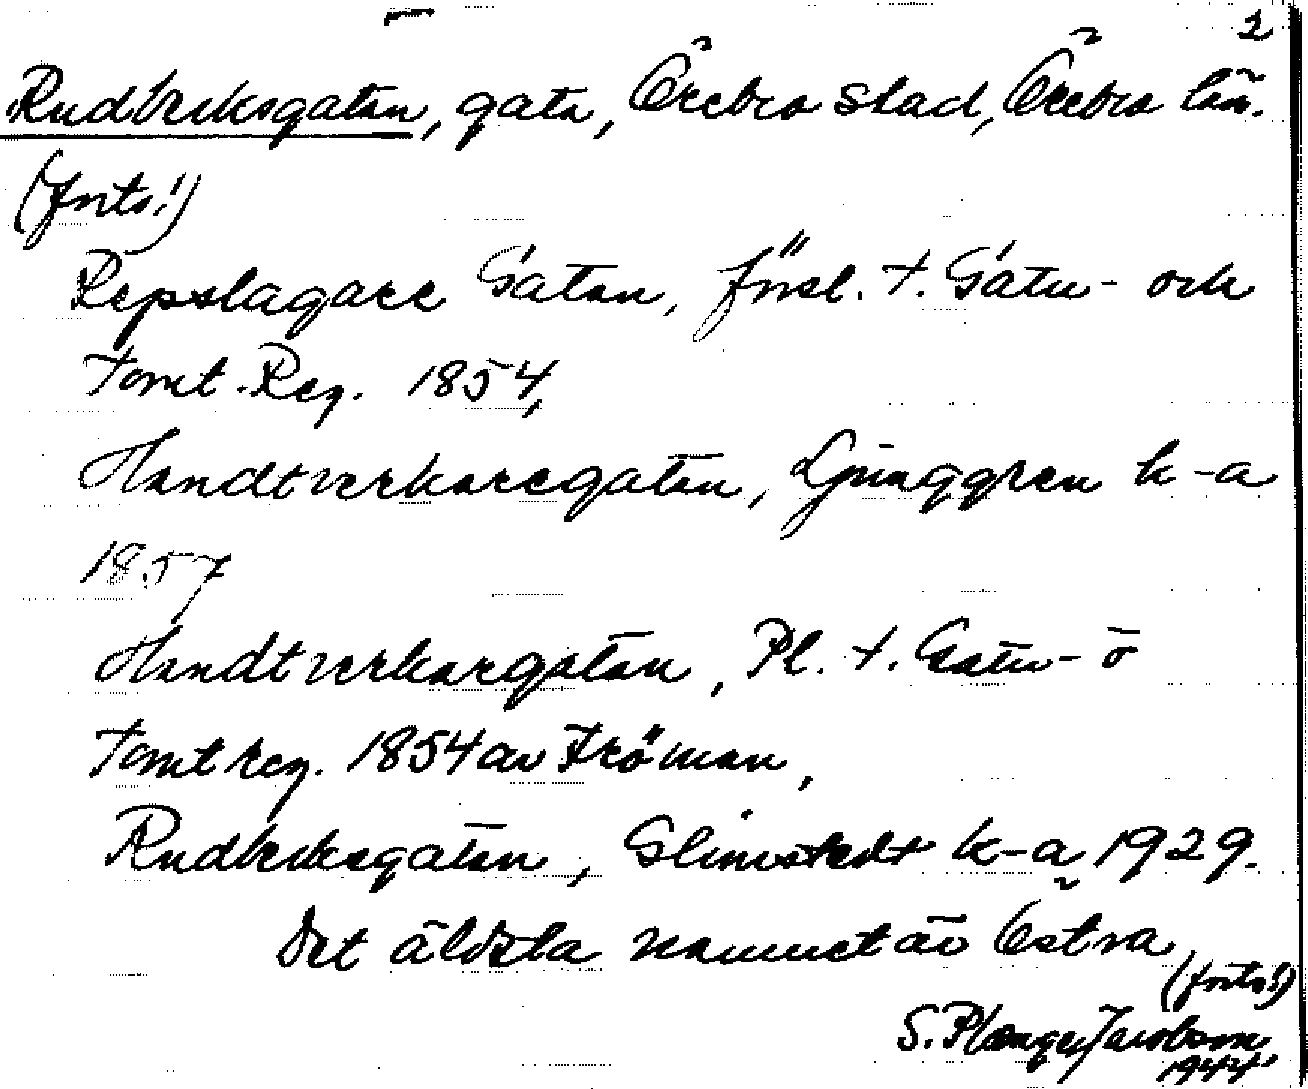 2
Rudbecksgatan, gata, Örebro stad, Örebro län.
(forts!)
Repslagare Gatan, försl. t. Gatu- och
Tomt-Reg. 1854,
Handtverkaregatan, Ljunggren k-a
1857
Handtverkargatan, Pl. t. Gatu- o
Tomtreg. 1854 av Fröman,
Rudbecksgatan, Glimstedt k-a 1929.
Det äldsta namnet är Östra
(forts!)
S. Plænge Jacobson
1944